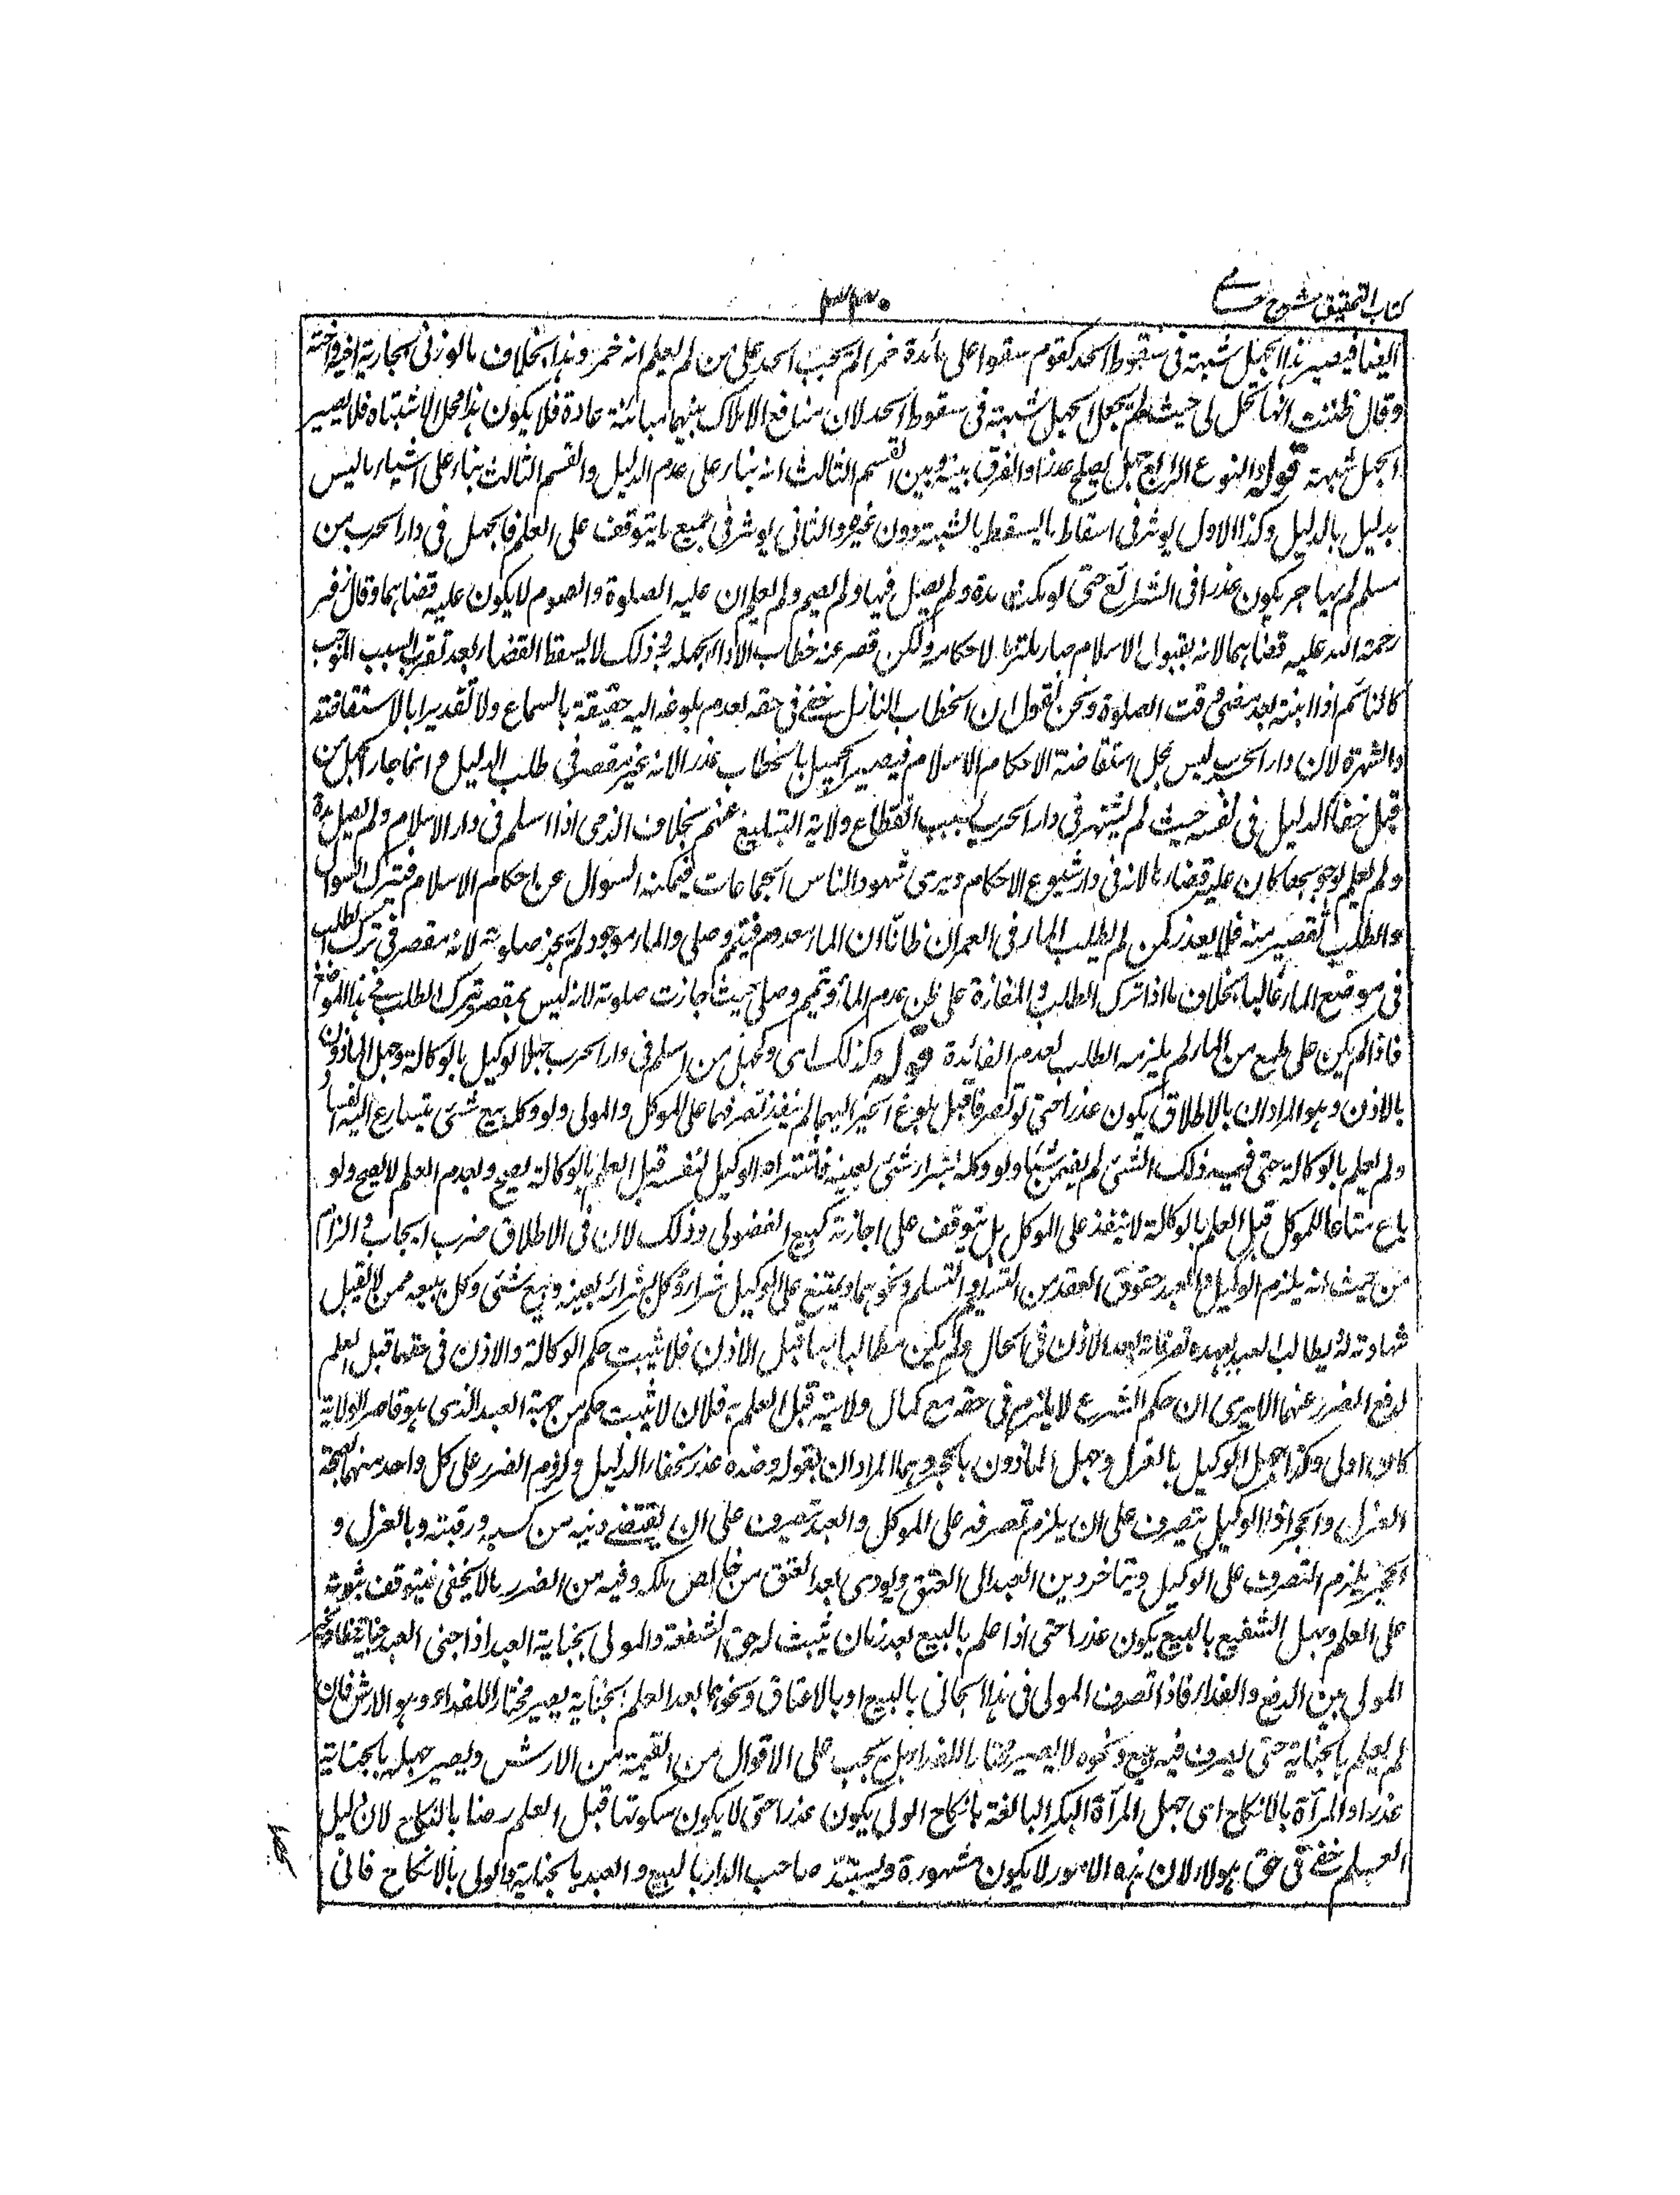 كتاب التحقيق شرح حسامى
۳۳۰
ايضا فيصير هذا الجهل شبهة فى سقوط الحد كقوم سقوا على مائدة خمرا لم يجب الحد على من لم يعلم انه خمر وهذا بخلاف ما لو زنى بجارية اخيه او اخته
وقال ظننت انها تحل لى حيث لم يجعل الجهل شبهة فى سقوط الحد لان منافع الاملاك بينهما مبائنة عادة فلا يكون هذا محل الاشتباه فلا يصير
الجهل شبهة قوله والنوع الرابع جهل يصلح عذرا والفرق بينه وبين القسم الثالث انه بناء على عدم الدليل والقسم الثالث بناء على اشتباه ما ليس
بدليل بالدليل وكذا الاول يوثر فى اسقاط ما يسقط بالشبهة دون غيره والثانى يوثر فى جميع ما يتوقف على العلم فالجهل فى دار الحرب من
مسلم لم يهاجر يكون عذرا فى الشرائع حتى لو مكث مدة ولم يصل فيها ولم يصم ولم يعلم ان عليه الصلوة والصوم لا يكون عليه قضاؤهما وقال زفر
رحمة الله عليه قضاؤهما لانه بقبول الاسلام صار ملتزما لاحكامه ولكن قصر عنه خطاب الاداء لجهله به وذلك لا يسقط القضاء بعد تقرر السبب الموجب
كالنائم اذا انتبه بعد مضى وقت الصلوة ونحن نقول ان الخطاب النازل خفى فى حقه لعدم بلوغه اليه حقيقة بالسماع ولا تقديرا بالاستفاضة
والشهرة لان دار الحرب ليس محل استفاضة الاحكام الاسلام فيصير الجهل بالخطاب عذرا لانه غير مقصر فى طلب الدليل وانما جاء الجهل من
قبل خفاء الدليل فى نفسه حيث لم يشتهر فى دار الحرب بسبب انقطاع ولاية التبليغ عنهم بخلاف الذمى اذا اسلم فى دار الاسلام ولم يصل مدة
ولم يعلم بوجوبها كان عليه قضاءها لانه فى دار شيوع الاحكام ويرى شهود الناس الجماعات فيمكنه السوال عن احكام الاسلام فترك السوال
والطلب تقصير منه فلا يعذر كمن لم يطلب الماء فى العمران ظانا ان الماء معدوم فتيمم وصلى والماء موجود لم يجز صلوته لانه مقصر فى ترك الطلب
فى موضع الماء غالبا بخلاف ما اذا ترك الطلب فى المفازة على ظن عدم الماء وتيمم وصلى حيث جازت صلوته لانه ليس بمقصر بترك الطلب فى هذا الموضع
فاذا لم يكن على طمع من الماء لم يلزمه الطلب لعدم الفائدة قوله وكذلك اى وكجهل من اسلم فى دار الحرب جهل الوكيل بالوكالة وجهل الماذون
بالاذن وهو المراد ان بالاطلاق يكون عذرا حتى لو تصرفا قبل بلوغ الخبر اليهما لم ينفذ تصرفهما على الموكل والمولى ولو وكله ببيع شئ يتسارع اليه الفساد
ولم يعلم بالوكالة حتى فسد ذلك الشئ لم يضمن شيئا ولو وكله بشراء شئ بعينه فاشتراه الوكيل لنفسه قبل العلم بالوكالة يصح وبعدم العلم لا يصح ولو
باع متاعا للموكل قبل العلم بالوكالة لا ينفذ على الموكل بل يتوقف على اجازته كبيع الفضولى وذلك لان فى الاطلاق ضرب ايجاب والزام
من حيث انه يلزم الوكيل والعبد حقوق العقد من التسليم والتسلم ونحوهما ويمتنع على الوكيل شراء ما وكل بشرائه بعينه وبيع شئ وكل ببيعه ممن لا تقبل
شهادته له ويطالب العبد بعهدة تصرفاته بعد الاذن فى الحال ولم يكن مطالبا بها قبل الاذن فلا يثبت حكم الوكالة والاذن فى حقهما قبل العلم
لدفع الضرر عنهما الا يرى ان حكم الشرع لا يلزم فى حقه مع كمال ولايته قبل العلم به فلان لا يثبت حكم من جهة العبد الذى هو قاصر الولاية
كان اولى وكذا جهل الوكيل بالعزل وجهل الماذون بالحجر وهما المراد ان بقوله وضده عذر لخفاء الدليل ولزوم الضرر على كل واحد منهما بصحة
العزل والحجر اذا الوكيل يتصرف على ان يلزم تصرفه على الموكل والعبد يتصرف على ان يقتضى دينه من كسبه ورقبته وبالعزل و
الحجر يلزم التصرف على الوكيل ويتاخر دين العبد الى العتق ويودى بعد العتق من خالص ملكه وفيه من الضرر ما لا يخفى فيتوقف ثبوته
على العلم وجهل الشفيع بالبيع يكون عذرا حتى اذا علم بالبيع بعد زمان يثبت له حق الشفعة والمولى بجناية العبد اذا جنى العبد جناية خطأ يخير
المولى بين الدفع والفداء فاذا تصرف المولى فى هذا الجانى بالبيع او بالاعتاق ونحوهما بعد العلم بجنايته يصير مختارا للفداء وهو الارش فان
لم يعلم بالجناية حتى تصرف فيه ببيع ونحوه لا يصير مختارا للفداء بل يجب على الاقل من القيمة ومن الارش ويصير جهله بالجناية
عذرا والمرأة بالانكاح اى جهل المرأة البكر البالغة بانكاح الولى يكون عذرا حتى لا يكون سكوتها قبل العلم رضا بالنكاح لان دليل
العلم خفى فى حق هولاء لان هذه الامور لا يكون مشهورة ويستبد صاحب الدار بالبيع والعبد بالجناية والولى بالانكاح فانى